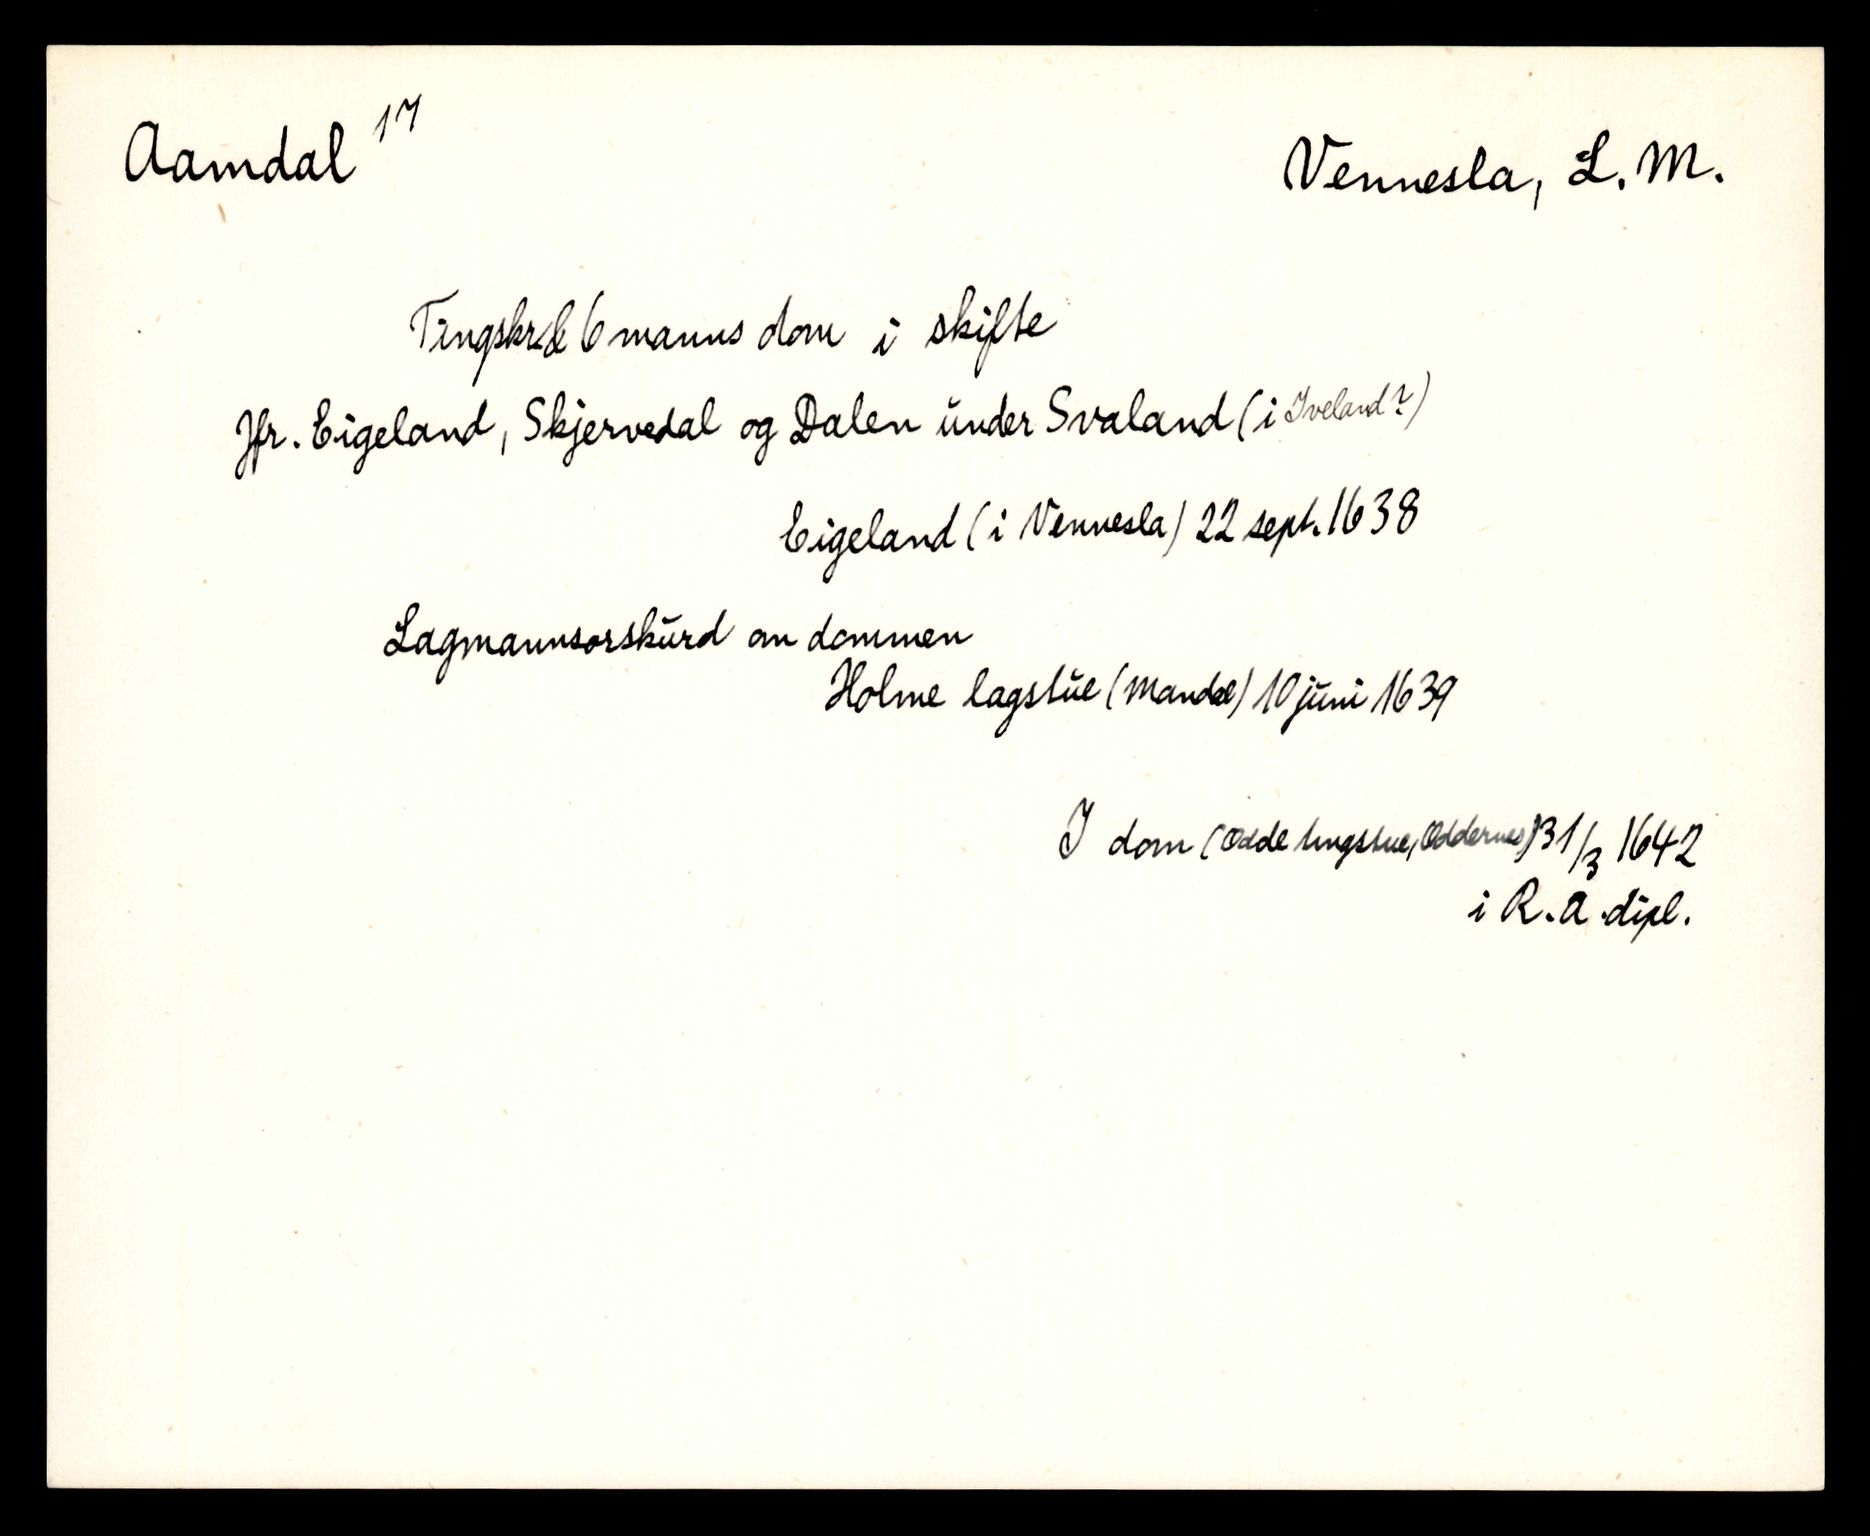 Aamdal 17
Vennesla, L. M.
Tingskr. & 6 manns dom i skifte
Jfr. Eigeland, Skjervedal og Dalen under Svaland (i Iveland?)
Eigeland (i Vennesla) 22 sept. 1638
Lagmannsorskurd om dommen
Holme lagstue (Mandal) 10 juni 1639
I dom (Odde tingstue, Oddernes) 31/3 1642
i R.A. dipl.